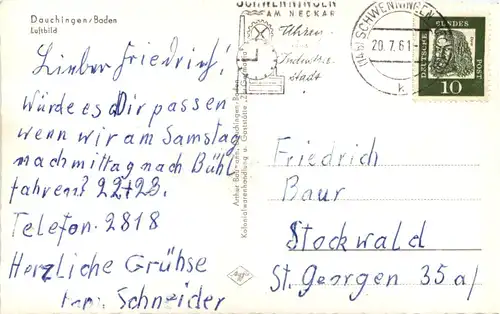 Dauchingen/Baden
Luftbild
Lieber Friedrich!
Würde es Dir passen
wenn wir am Samstag
nachmittag nach Bühl
fahren? 22+23.
Telefon. 2818
Herzliche Grühse
Schneider
Kolonialwarenhandlung u. Gaststätte
SCHWENNINGEN
AM NECKAR
Uhren
Industrie
stadt
SCHWENNINGEN
20.7.61
DEUTSCHE BUNDES POST
10
Friedrich
Baur
Stockwald
St. Georgen 35a/